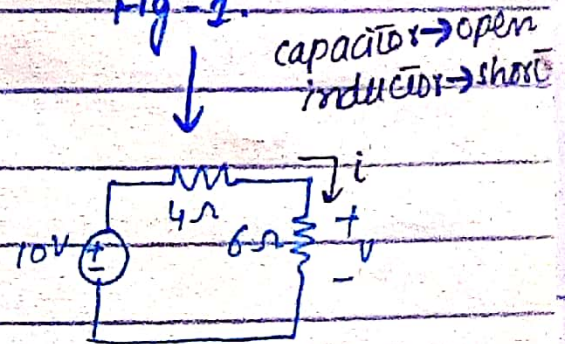 Fig-1.
capacitor→open
inductor→short
i
4Ω
10V
+
-
6Ω
+
V
-